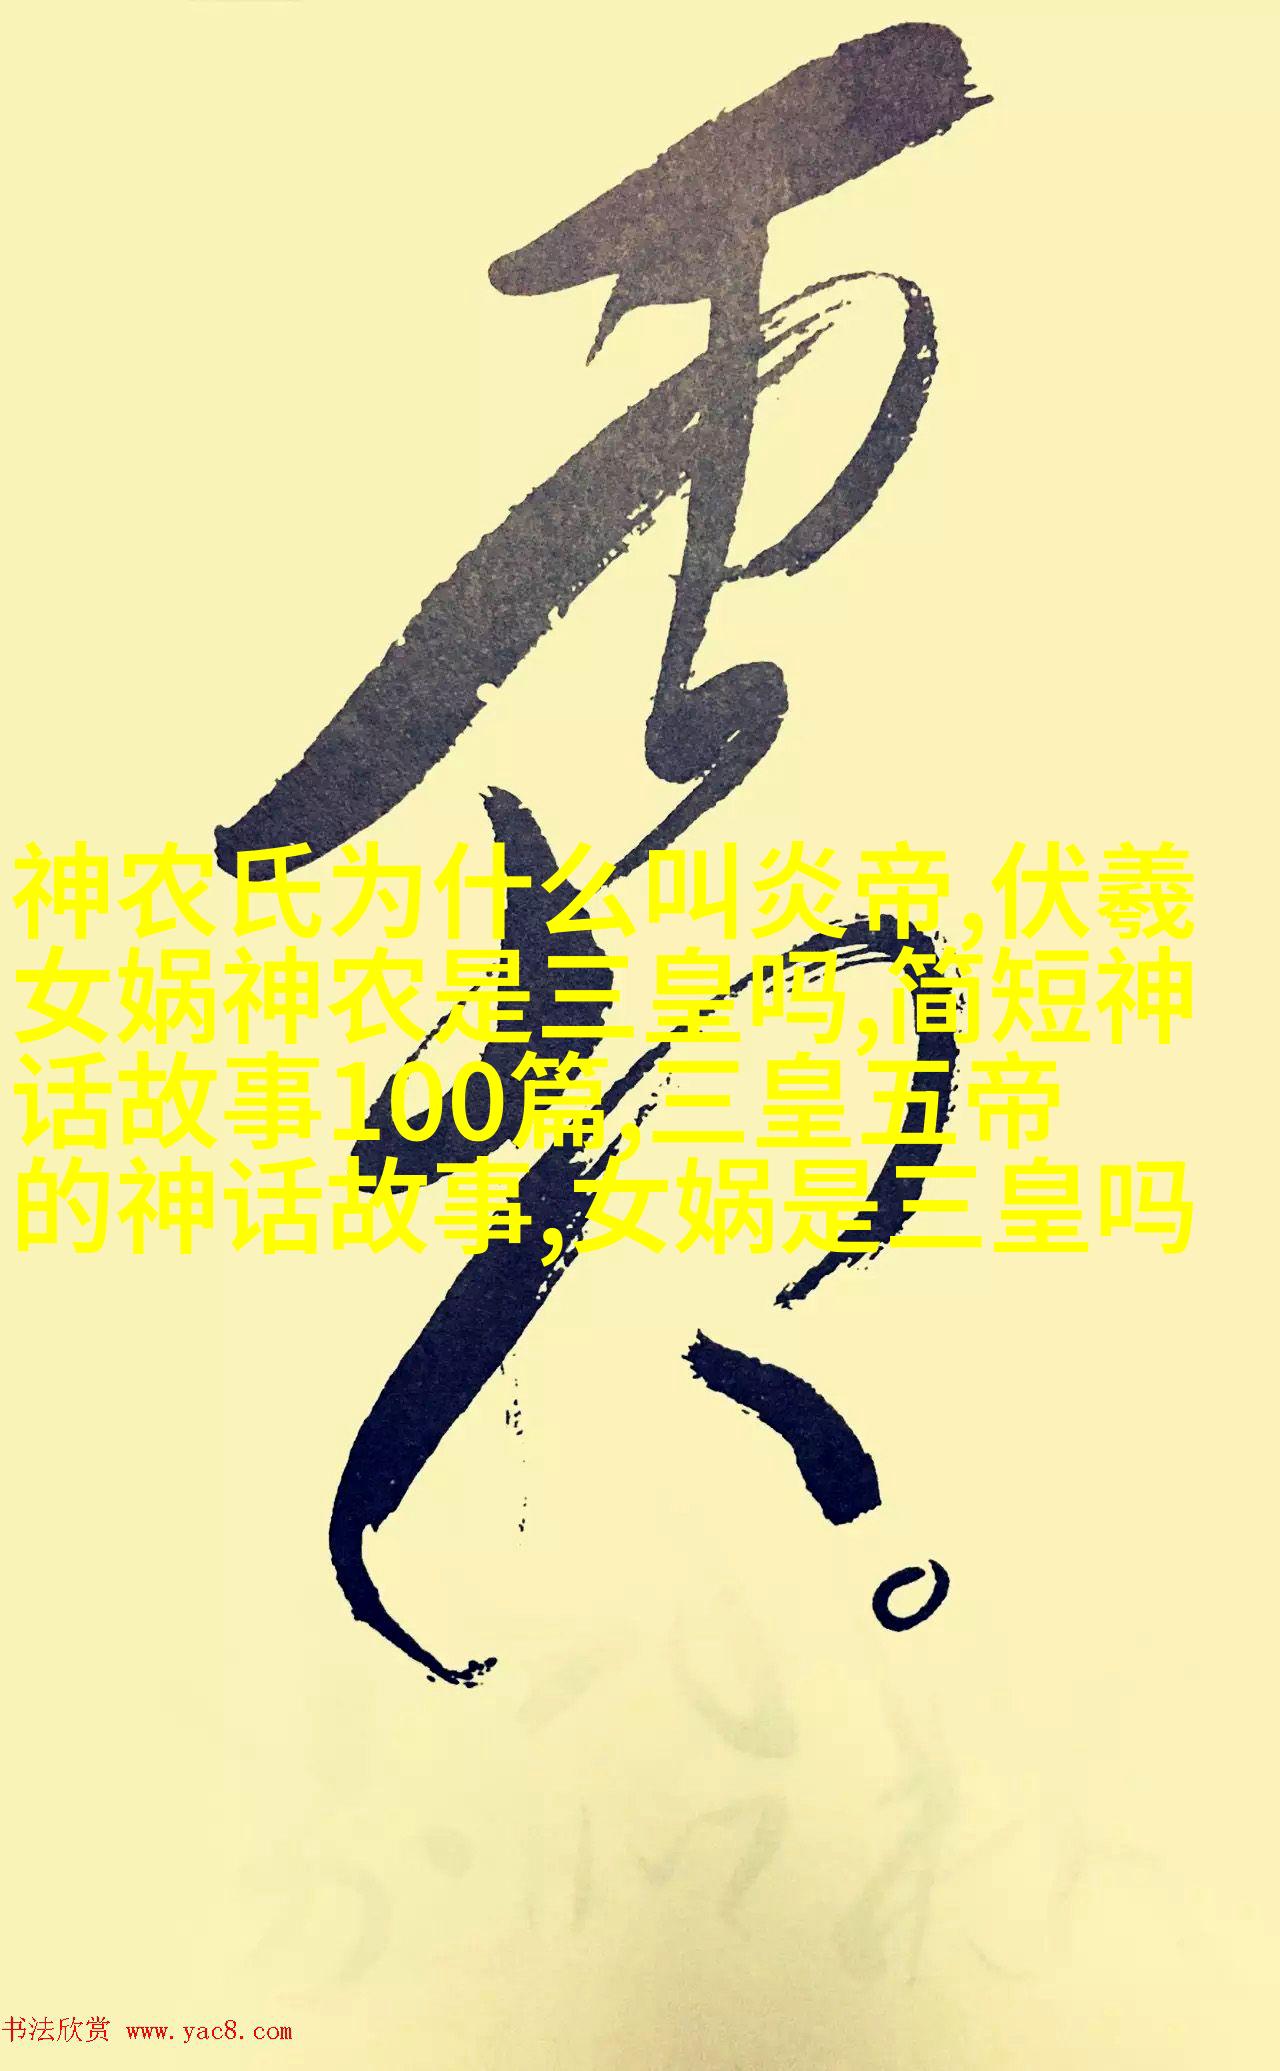 神农氏为什么叫炎帝,伏羲
女娲神农是三皇吗,简短神
话故事100篇,三皇五帝
的神话故事,女娲是三皇吗
书法欣赏 www.yac8.com